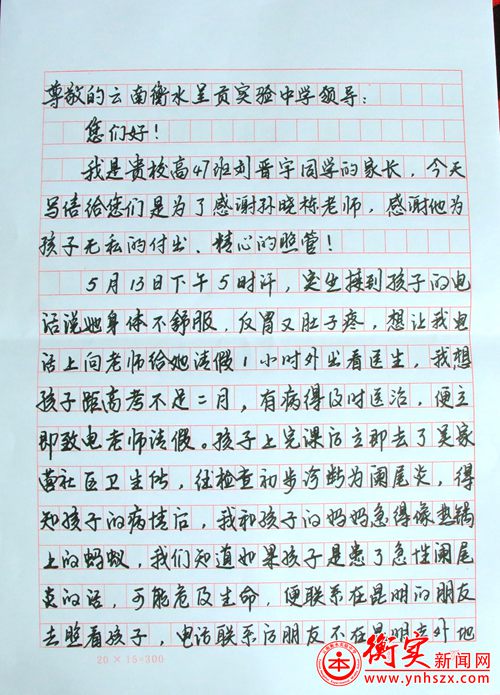 尊敬的云南衡水呈贡实验中学领导：
您们好！
我是贵校高47班刘晋宇同学的家长，今天
写信给您们是为了感谢孙晓栋老师，感谢他为
孩子无私的付出、精心的照管！
5月13日下午5时许，突然接到孩子的电
话说她身体不舒服，反胃又肚子疼，想让我电
话上向老师给她请假1小时外出看医生，我想
孩子距高考不足二月，有病得及时医治，便立
即致电老师请假。孩子上完课后立即去了吴家
营社区卫生院，经检查初步诊断为阑尾炎，得
知孩子的病情后，我和孩子的妈妈急得像热锅
上的蚂蚁，我们知道如果孩子是患了急性阑尾
炎的话，可能危及生命，便联系在昆明的朋友
去照看孩子，电话联系后朋友不在昆明去外地
20×15=300
衡实新闻网
www.ynhszx.com